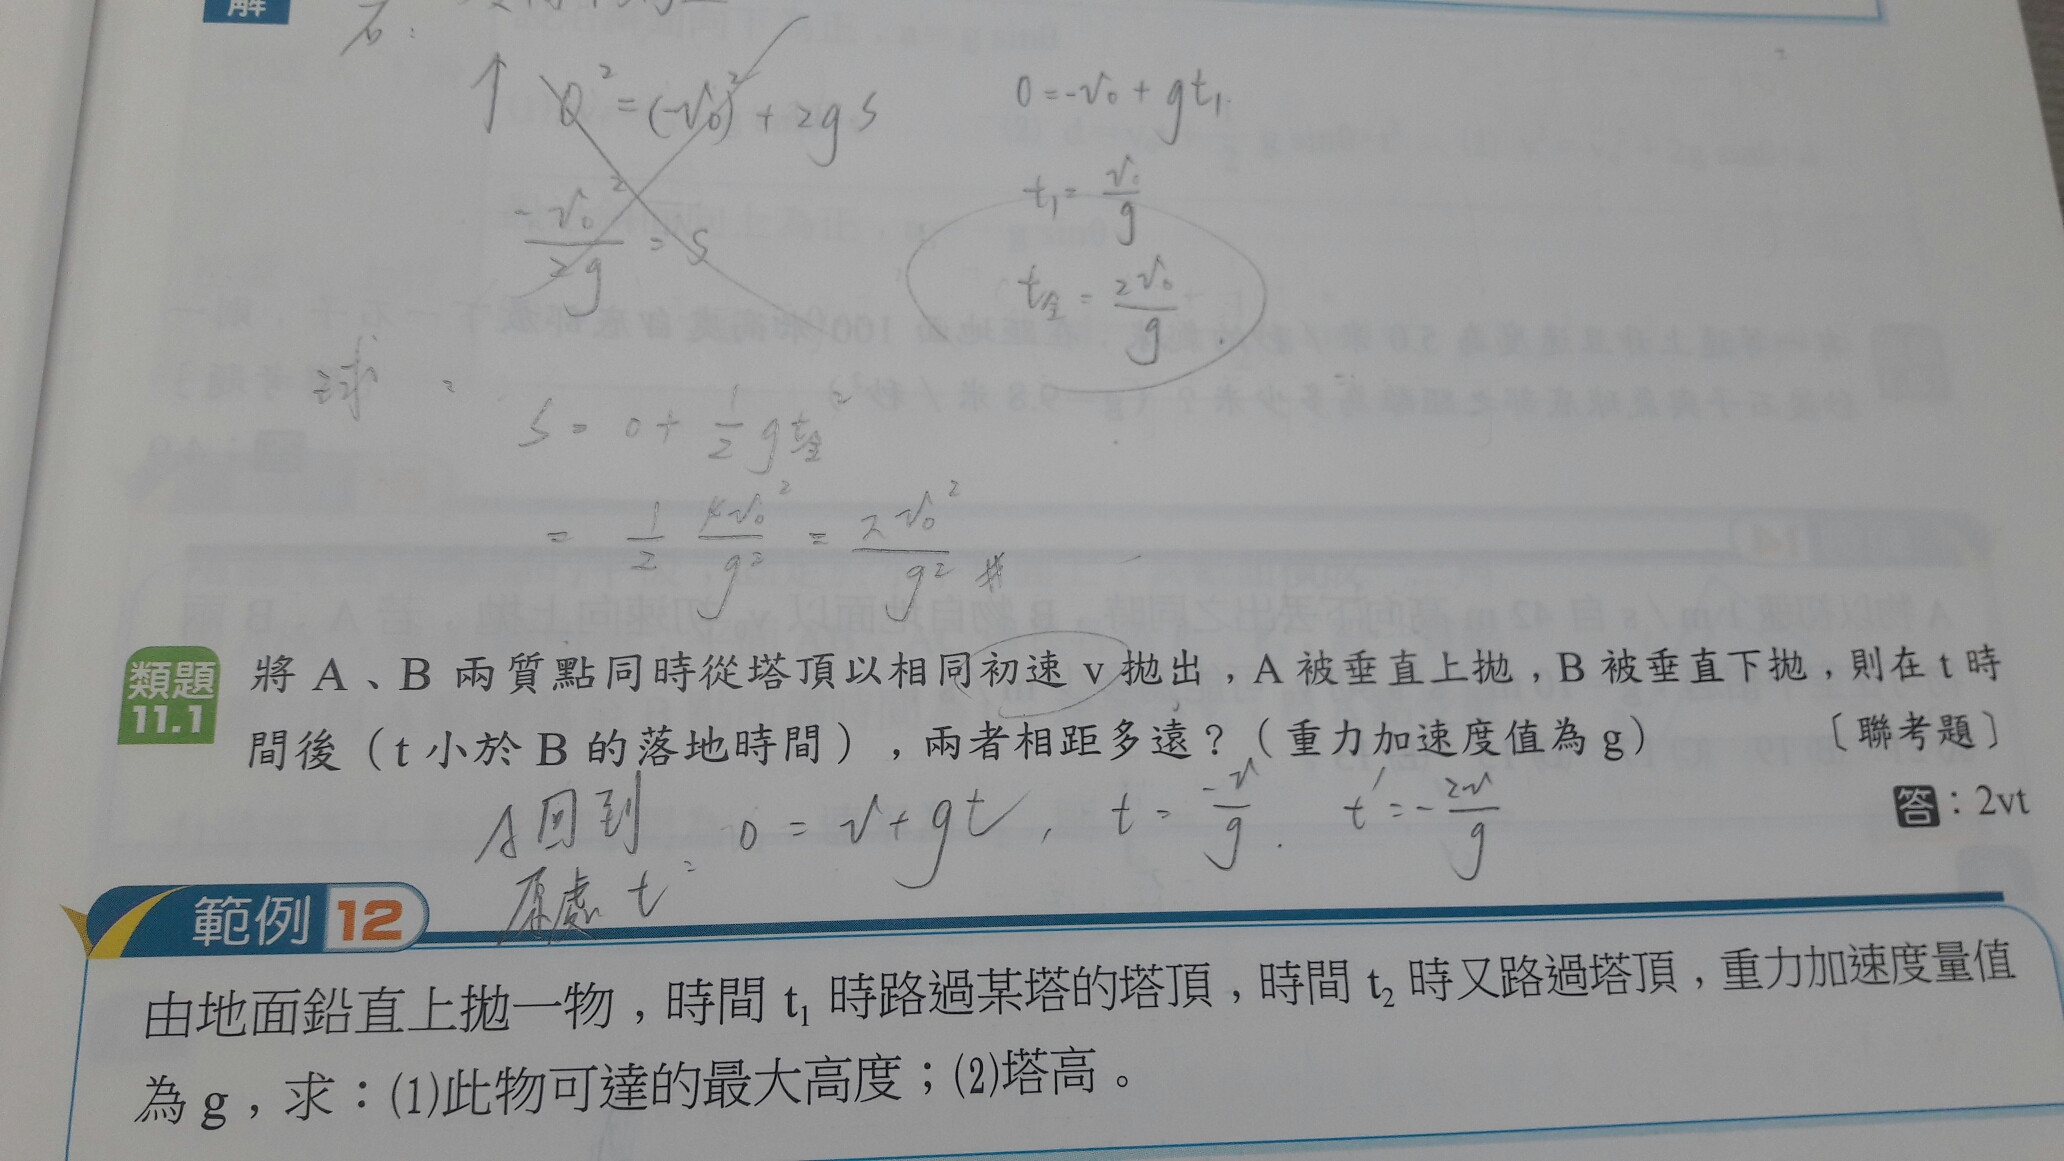 解
石:
↑ 0² = (-v₀)² + 2gS
-v₀²/2g = S
0 = -v₀ + gt₁
t₁ = v₀/g
t全 = 2v₀/g
球:
S = 0 + 1/2 gt全²
= 1/2 4v₀²/g² = 2v₀²/g² #
類題 11.1 將 A、B 兩質點同時從塔頂以相同初速 v 拋出,A 被垂直上拋,B 被垂直下拋,則在 t 時
間後(t 小於 B 的落地時間),兩者相距多遠?(重力加速度值為 g) 〔聯考題〕
答:2vt
A回到
原處 t:
0 = v + gt, t = -v/g. t' = -2v/g
範例 12
由地面鉛直上拋一物,時間 t₁ 時路過某塔的塔頂,時間 t₂ 時又路過塔頂,重力加速度量值
為 g,求:(1)此物可達的最大高度;(2)塔高。